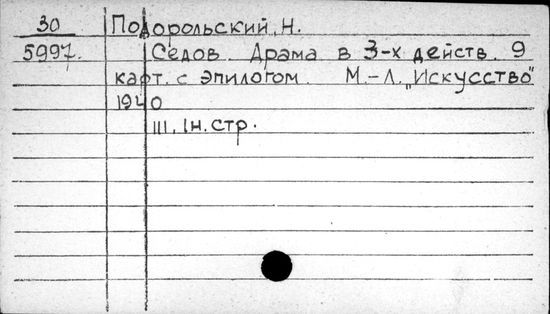 30 Подорольский, Н.
5997. Седов. Драма в 3-х действ. 9
карт. с эпилогом. М.-Л. „Искусство"
1940
111, 1н. стр.